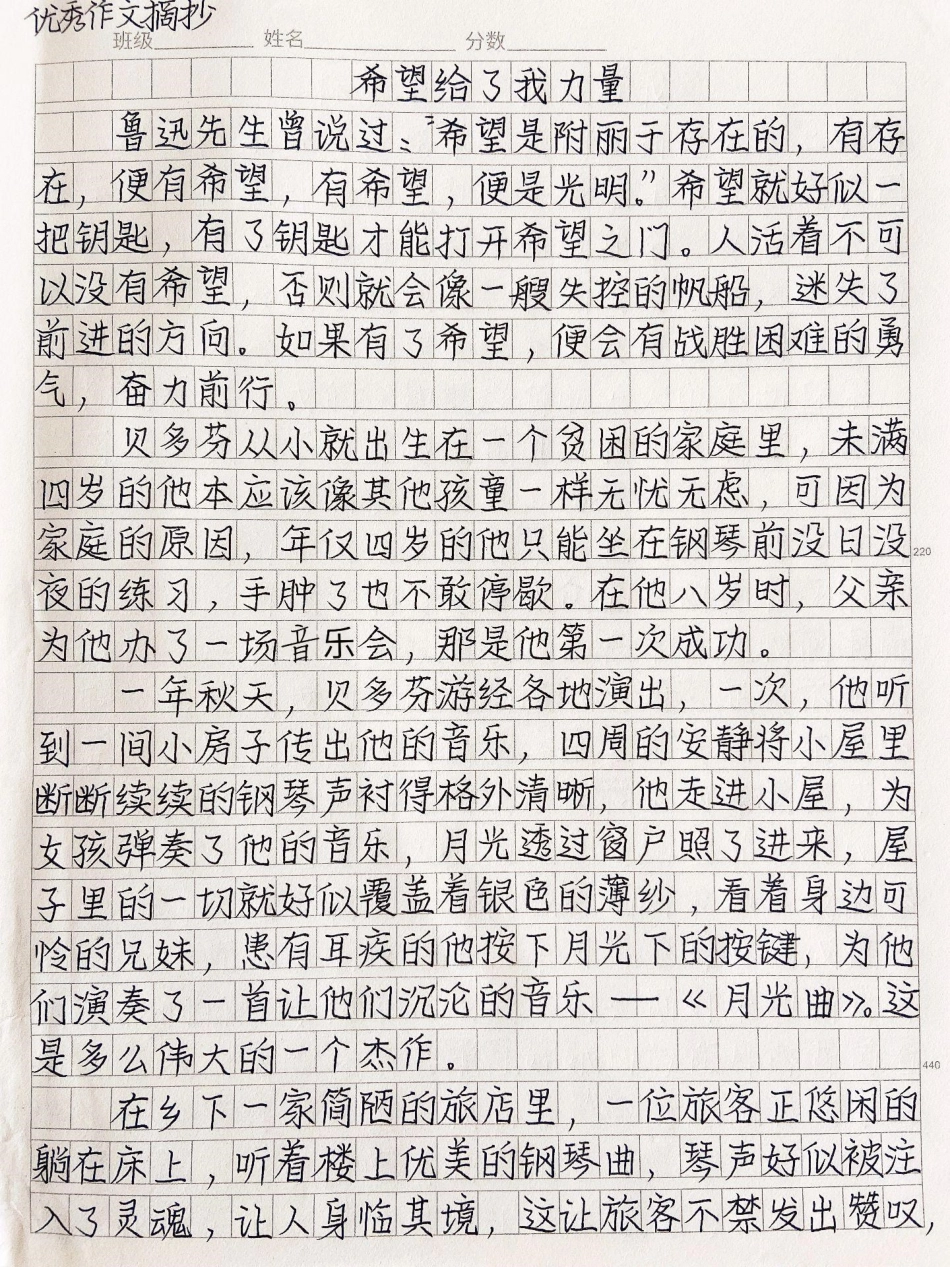 优秀作文摘抄
班级 姓名 分数
希望给了我力量
鲁迅先生曾说过：“希望是附丽于存在的，有存
在，便有希望，有希望，便是光明。”希望就好似一
把钥匙，有了钥匙才能打开希望之门。人活着不可
以没有希望，否则就会像一艘失控的帆船，迷失了
前进的方向。如果有了希望，便会有战胜困难的勇
气，奋力前行。
贝多芬从小就出生在一个贫困的家庭里，未满
四岁的他本应该像其他孩童一样无忧无虑，可因为
家庭的原因，年仅四岁的他只能坐在钢琴前没日没
220
夜的练习，手肿了也不敢停歇。在他八岁时，父亲
为他办了一场音乐会，那是他第一次成功。
一年秋天，贝多芬游经各地演出，一次，他听
到一间小房子传出他的音乐，四周的安静将小屋里
断断续续的钢琴声衬得格外清晰，他走进小屋，为
女孩弹奏了他的音乐，月光透过窗户照了进来，屋
子里的一切就好似覆盖着银色的薄纱，看着身边可
怜的兄妹，患有耳疾的他按下月光下的按键，为他
们演奏了一首让他们沉沦的音乐——《月光曲》。这
是多么伟大的一个杰作。
440
在乡下一家简陋的旅店里，一位旅客正悠闲的
躺在床上，听着楼上优美的钢琴曲，琴声好似被注
入了灵魂，让人身临其境，这让旅客不禁发出赞叹，